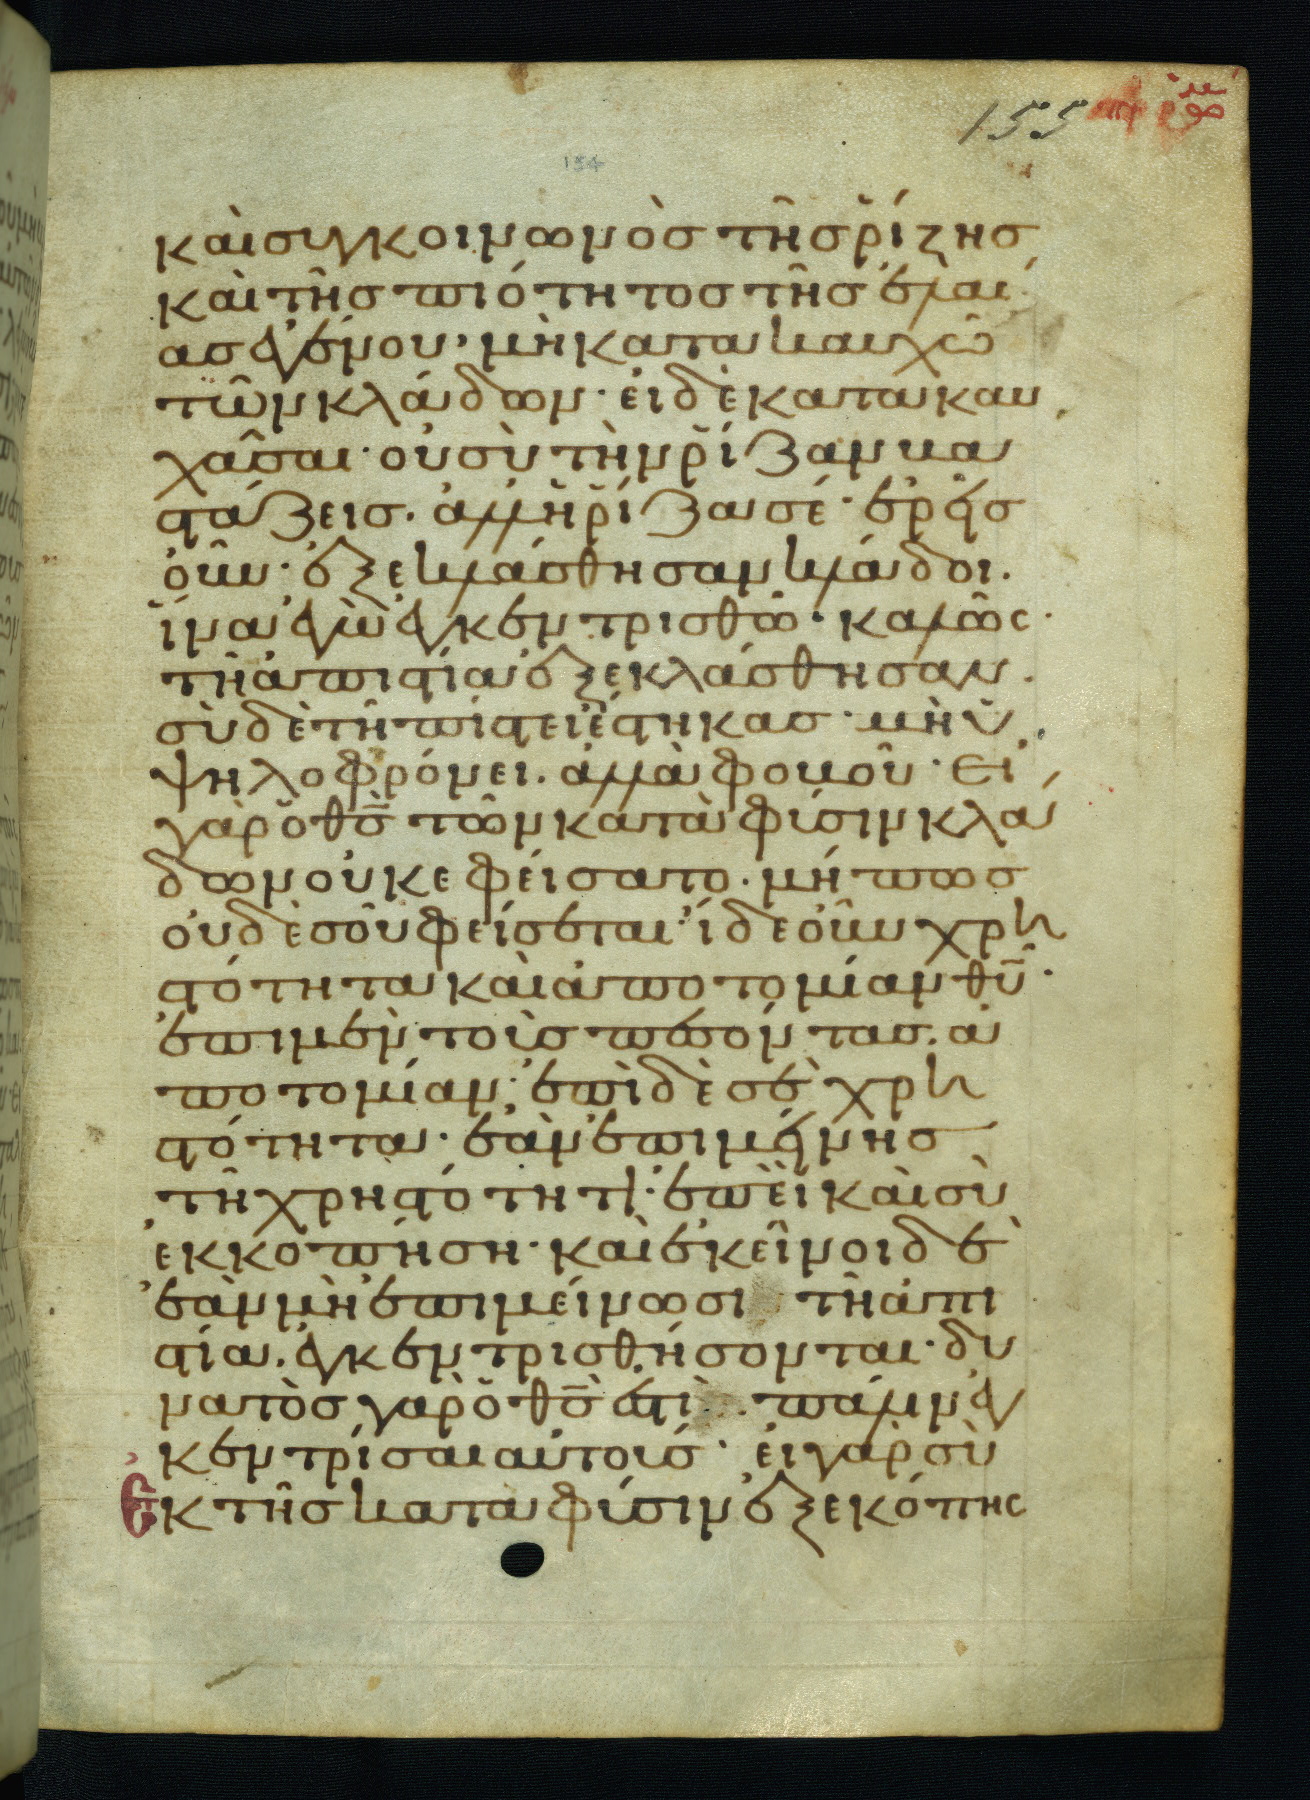 155
154
καὶ συγκοινωνὸς τῆς ῥίζης
καὶ τῆς πιότητος τῆς ἐλαί
ας ἐγένου· μὴ κατακαυχῶ
τῶν κλάδων· εἰ δὲ κατακαυ
χᾶσαι· οὐ σὺ τὴν ῥίζαν βα
στάζεις. ἀλλ ἡ ῥίζα σέ· ἐρεῖς
οὖν· ἐξεκλάσθησαν κλάδοι.
ἵνα ἐγὼ ἐγκεντρισθῶ· καλῶς·
τῇ ἀπιστία ἐξεκλάσθησαν.
σὺ δὲ τῇ πίστει ἕστηκας· μὴ ὑ
ψηλοφρόνει. ἀλλὰ φοβοῦ· Εἰ
γὰρ ὁ θς τῶν κατὰ φύσιν κλά
δων οὐκ ἐφείσατο. μήπως
οὐδὲ σοῦ φείσεται· ἴδε οὖν χρη
στότητα καὶ ἀποτομίαν θυ·
ἐπι μὲν τοὺς πεσόντας. ἀ
ποτομίαν· ἐπὶ δὲ σὲ χρη
στότητα· ἐὰν ἐπιμείνης
τῇ χρηστότητι· ἐπεὶ καὶ σὺ
ἐκκοπήση· καὶ ἐκεῖνοι δὲ
ἐὰν μὴ ἐπιμείνωσι τῇ ἀπι
στία. ἐγκεντρισθήσονται· δυ
νατὸς γὰρ ὁ θς ἐστὶ πάλιν ἐγ
κεντρίσαι αὐτούς· εἰ γὰρ σὺ
ἐκ τῆς κατα φύσιν ἐξεκόπης